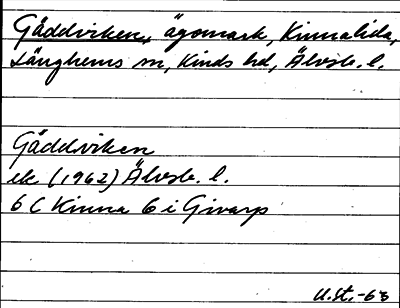 Gäddviken, ägomark, Kinnalida,
Länghems sn, Kinds hd, Älvsb. l.
Gäddviken
ek (1962) Älvsb. l.
6 C Kinna 6 i Givarp
U.St.-63